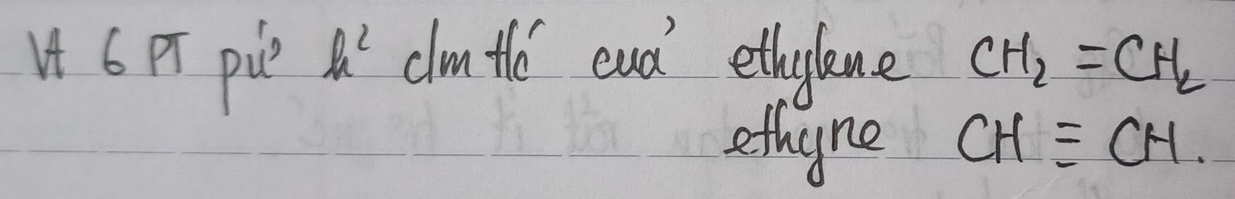 Vt 6 PT pứ h² c/m t/c của ethylene CH₂ = CH₂
ethyne CH ≡ CH.